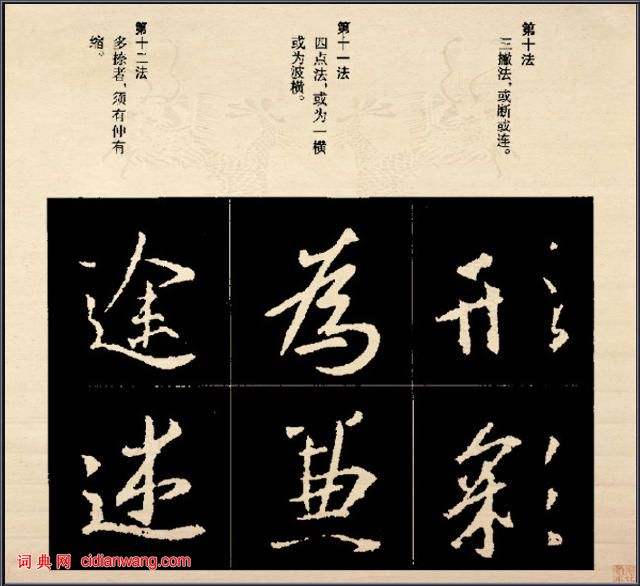 第十法
三撇法，或断或连。
第十一法
四点法，或为一横
或为波横。
第十二法
多捺者，须有仲有
缩。
形
彩
為
途
述
词典网 cidianwang.com